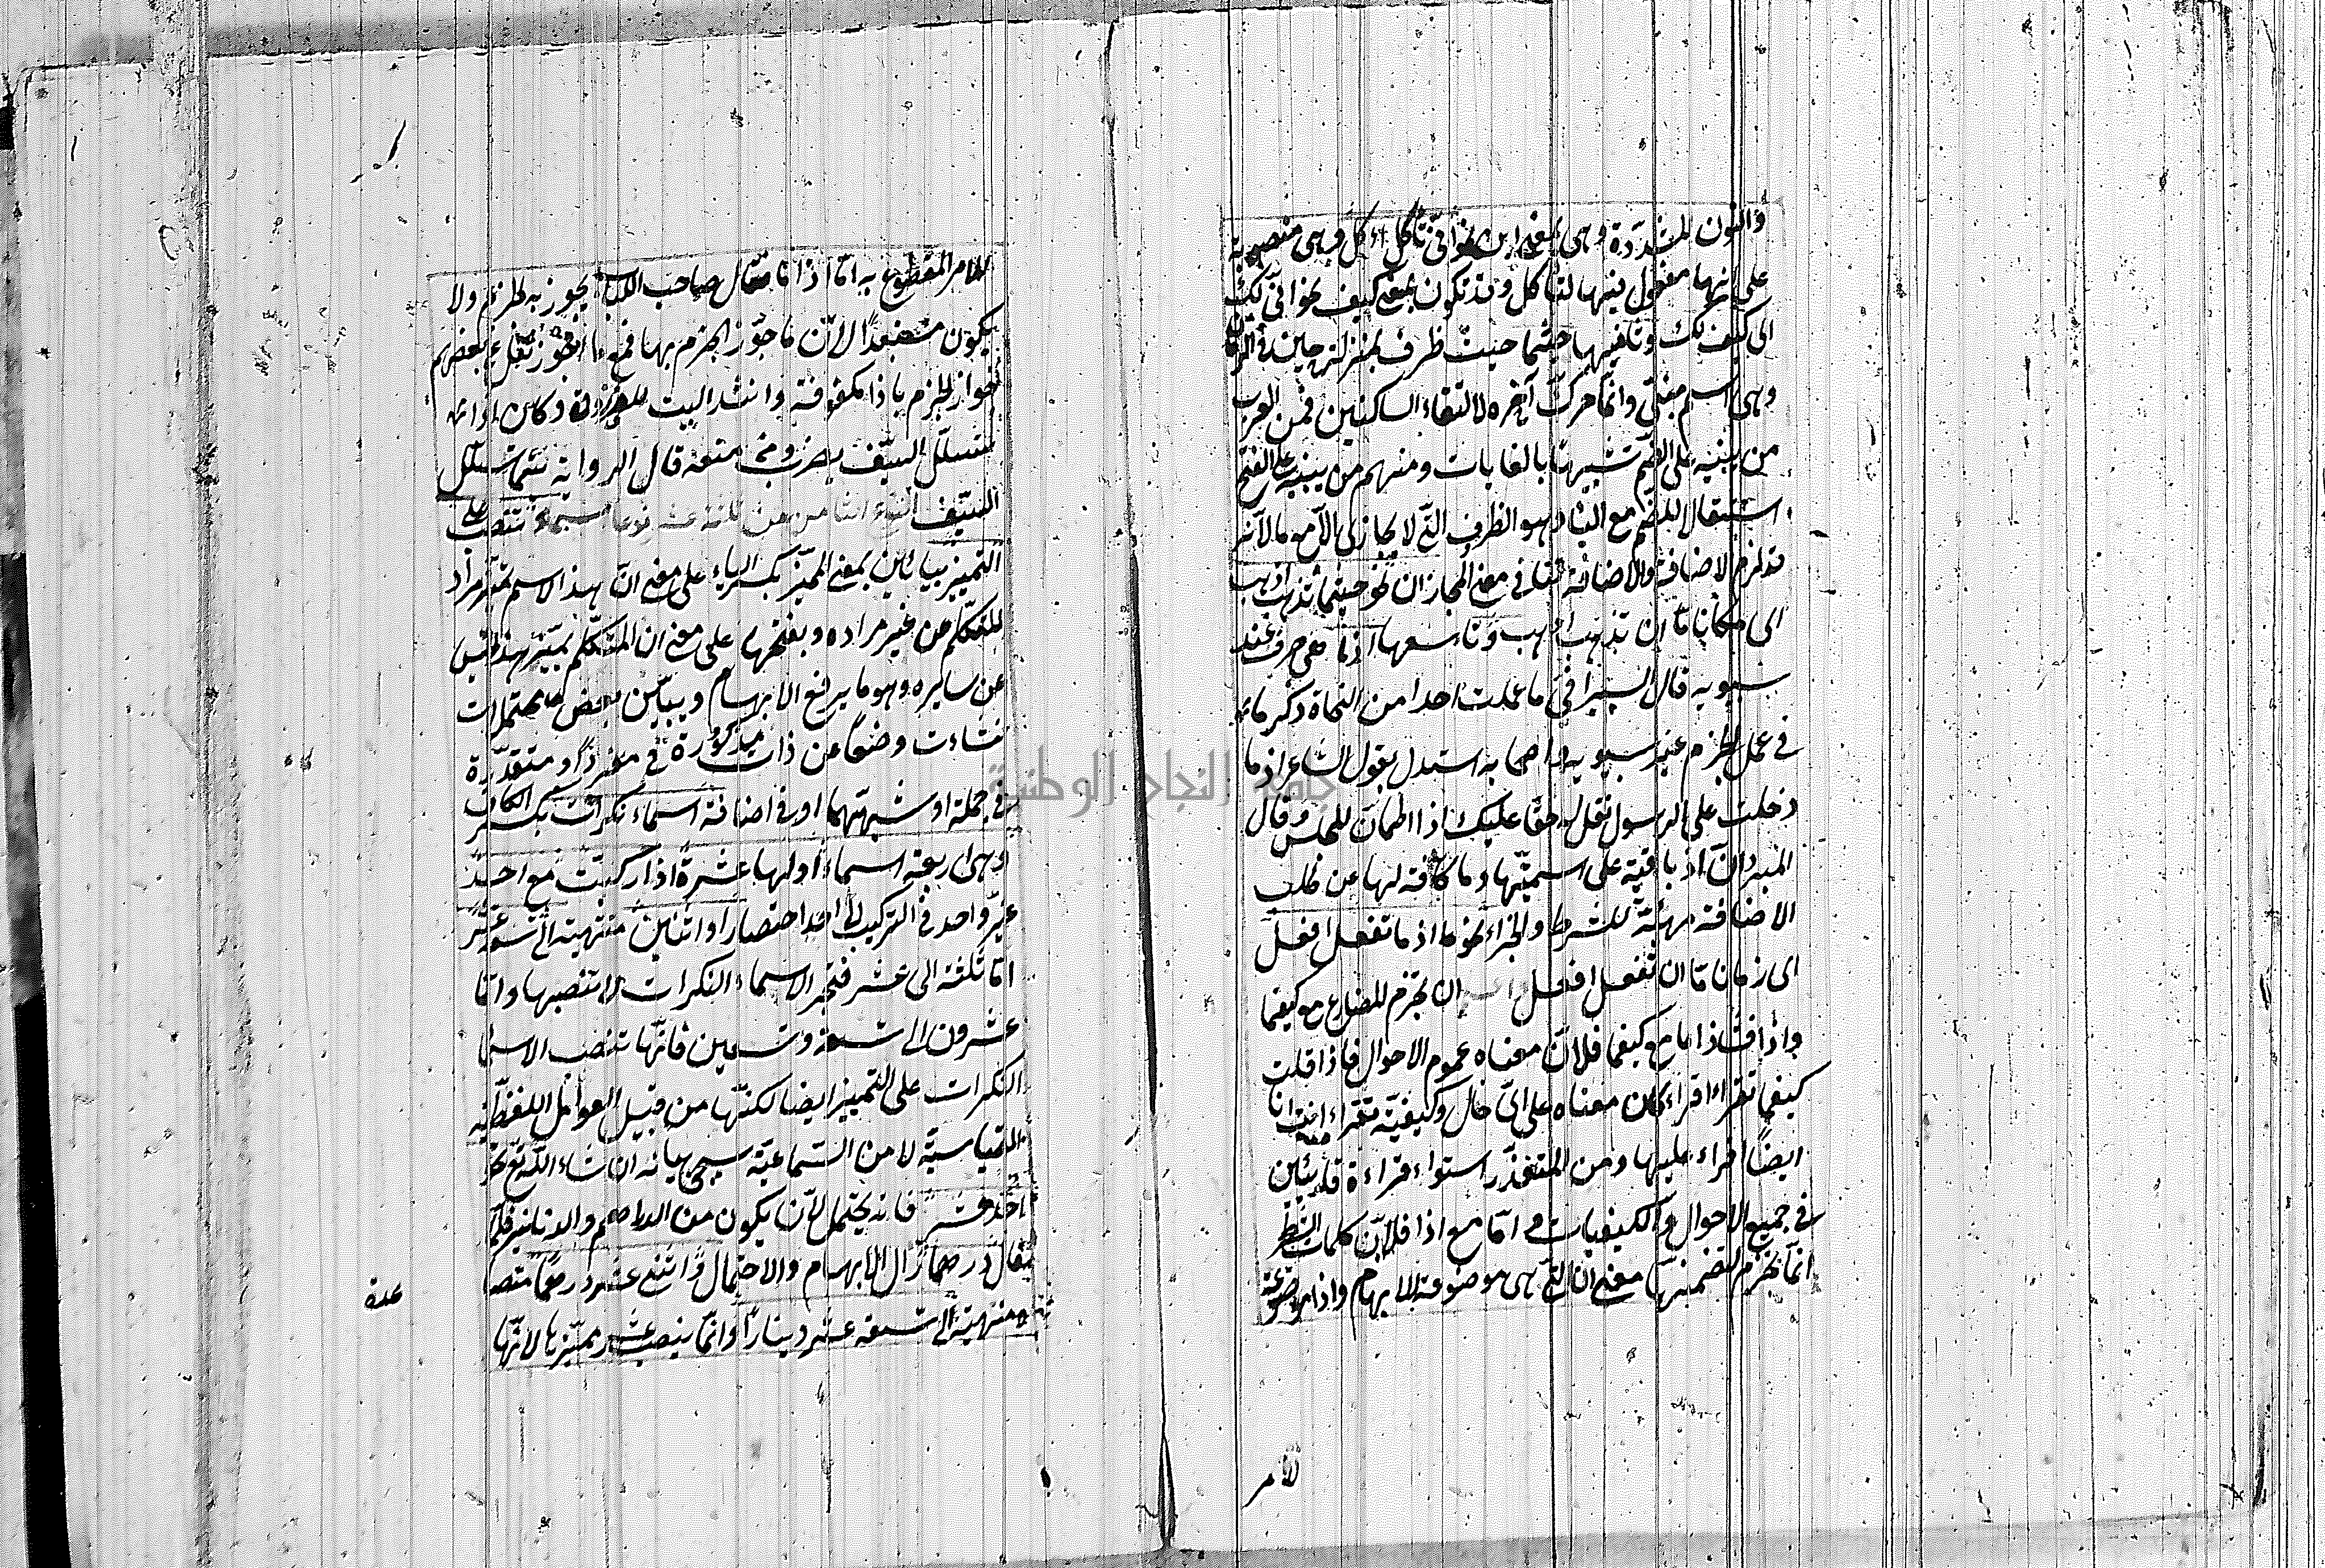 والنون المشددة وهى بمعنى اين نحو انى تأكل اكل وهى منصوبة
على انها مفعول فيها لتأكل وقد تكون بمعنى كيف نحو انى لك
اى كيف لك وثامنها حيثما حيث ظرف بمنزلة حين فى الزمان
وهى اسم مبنى وانما حرك آخره لالتقاء الساكنين فمن العرب
من يبنيه على الضم تشبيها بالغايات ومنهم من يبنيه على الفتح
استثقالا للضم مع الياء وهو الظرف التى لا يجازى الا مع ما لانه
قد لزم الاضافة والاضافة تنافى معنى المجازات نحو حيثما تذهب اذهب
اى مكانا ما ان تذهب اذهب وتاسعها اذما هى حرف عند
سيبويه قال السيرافى ما علمت احدا من النحاة ذكر ما
فى عمل الجزم غير سيبويه واصحابه استدل بقول الشاعر اذما
دخلت على الرسول فقل له حقا عليك اذا اطمأن المجلس وقال
المبرد ان اذ باقية على اسميتها وما كافة لها عن طلب
الاضافة مهيئة للشرط والجزاء نحو اذ ما تفعل افعل
اى زمانا ما ان تفعل افعل ان تجزم المضارع مع كيفما
واذا فشاذ اما مع كيفما فلان معناه عموم الاحوال فاذا قلت
كيفما تقراء اقراء كان معناه على اى حال وكيفية تقراء انت انا
ايضا اقراء عليها ومن المتعذر استواء قراءة قارئين
فى جميع الاحوال والكيفيات واما مع اذا فلان كلمات الشرط
انما تجزم لتضمنها معنى ان التى هى موضوعة للابهام واذا موضوعة
للامر
للامر المقطوع به اما اذا ما فقال صاحب اللب يجوز به الجزم ولا
يكون مستبعدا لان ما جوز الجزم بها نقل عن بعضهم
جواز الجزم باذا مكفوفة وانشد البيت للفرزدق وكان اذا ما
يسلل السيف يضرب متعه قال الرواية متى ما يسلل
السيف النوع الثامن من ثلثة عشر نوعا اسماء تنصب على
التمييز بيائين بمعنى المميز بكسر الياء على معنى ان هذا الاسم يميز مراد
المتكلم عن غير مراده وبفتحها على معنى ان المتكلم يميز هذا الجنس
عن سايره وهو ما يرفع الابهام ويبين بعض المحتملات
نشاءت وضعا عن ذات مذكورة فى مفرد او متقدرة
فى جملة او شبهتهما او فى اضافة اسماء نكرات بكسر الكاف
وهى اربعة اسماء اولها عشرة اذا ركبت مع احد
غير واحد فى التركيب الى احد اختصارا او اثنين منتهية الى تسعة عشر
اما ثلثة الى عشر فتجر الاسماء النكرات لا تنصبها واما
عشرون الى تسعة وتسعين فانها تنصب الاسماء
النكرات على التمييز ايضا لكنها من قبيل العوامل اللفظية
القياسية لا من السماعية سيجئ بيانه ان شاء الله تع نحو
احد عشر فانه يحتمل لان يكون من الدراهم والدنانير فلما
يقال درهما زال الابهام والاحتمال واثنى عشر درهما متصا
عدة ومنتهية الى تسعة عشر دينارا وانما ينصب عشر مميزها لانها